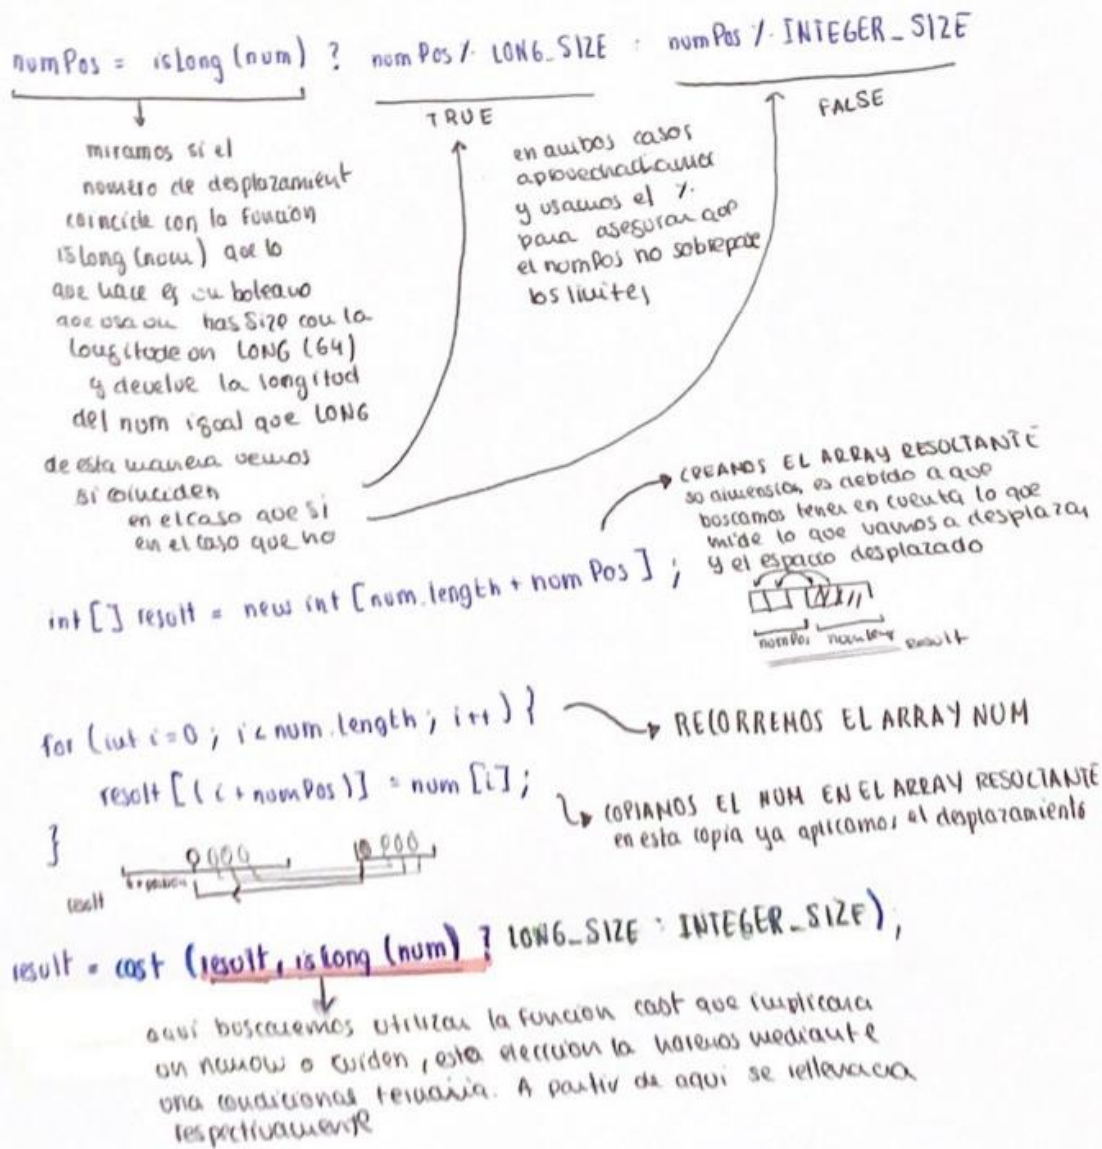 numPos = isLong (num) ? numPos % LONG_SIZE : numPos % INTEGER_SIZE
TRUE
FALSE
miramos si el
número de desplazamient
coincide con la función
isLong (num) que lo
que hace es un boleano
que usa un hasSize con la
longitude on LONG (64)
y develve la longitud
del num igual que LONG
de esta manera vemos
si coinciden
en el caso que si
en el caso que no
en ambos casos
y usamos el %
para asegurar que
el numPos no sobrepase
los limites
CREAMOS EL ARRAY RESULTANTE
su dimensión es debido a que
buscamos tener en cuenta lo que
mide lo que vamos a desplazar
y el espacio desplazado
int [] result = new int [num.length + numPos] ;
numPos numLeng result
for (int i=0 ; i < num.length ; i++) {
RECORREMOS EL ARRAY NUM
result [(i + numPos)] = num [i] ;
COPIAMOS EL NUM EN EL ARRAY RESULTANTE
en esta copia ya aplicamos el desplazamiento
}
result
result = cast (result, isLong (num) ? LONG_SIZE : INTEGER_SIZE) ;
aquí buscaremos utilizar la función cast que implicara
un narrow o widen, esta elección la haremos mediante
una condicional ternaria. A partir de aqui se rellenara
respectivamente